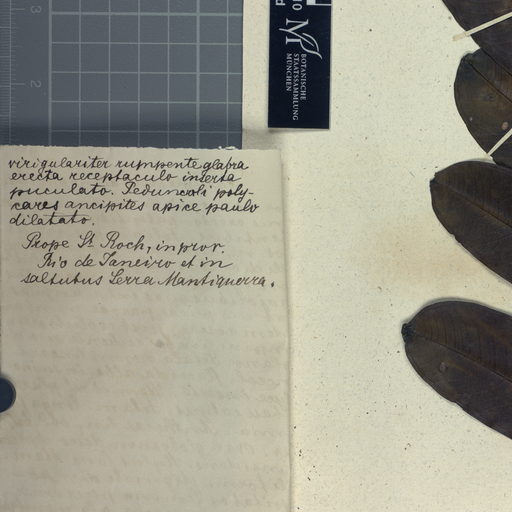 3
2
10
M
BOTANISCHE
STAATSSAMMLUNG
MÜNCHEN
virigulariter rumpente glabra
erecta receptaculo inserta
puculato. Pedunculi poly-
cares ancipites apice paulo
dilatato.
Prope St. Roch, in prov.
Rio de Janeiro et in
saltubus Serra Mantiquerra.